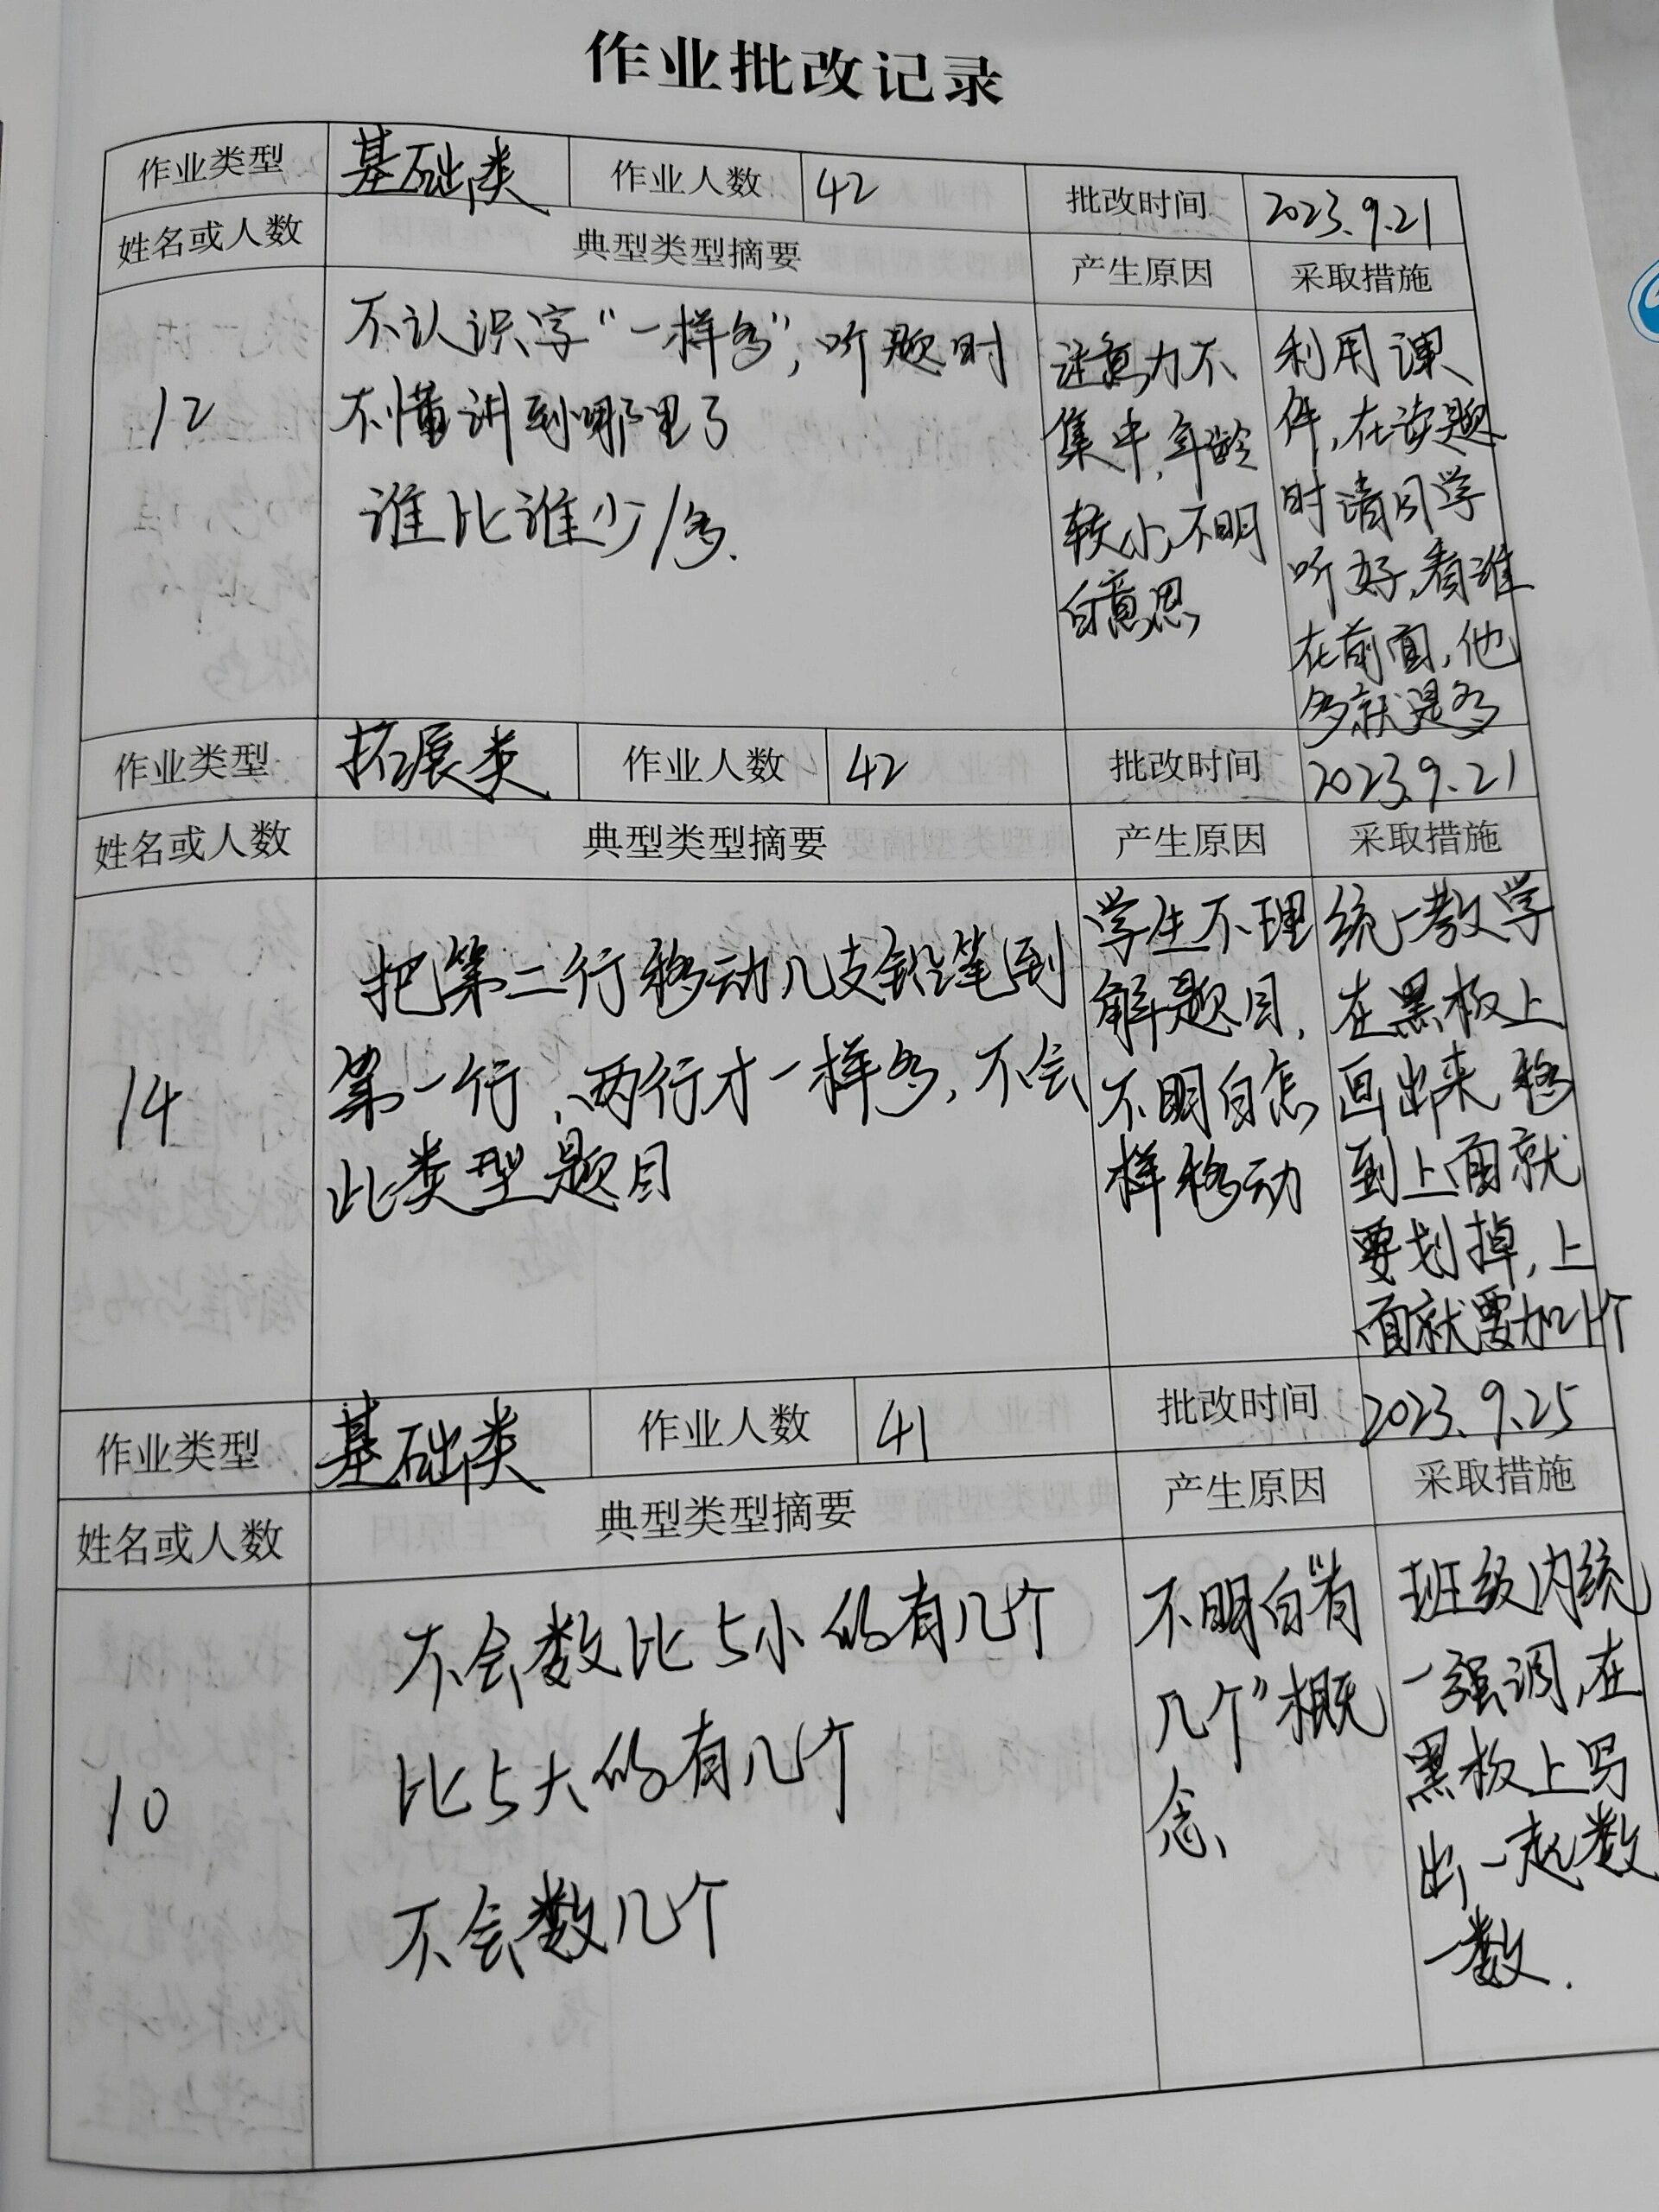 作业批改记录
作业类型 基础类 作业人数 42 批改时间 2023.9.21
姓名或人数 典型类型摘要 产生原因 采取措施
12
不认识字“一样多”，听题时
不懂讲到哪里了
谁比谁少/多.
注意力不
集中，年龄
较小，不明
白意思
利用课
件，在读题
时请同学
听好，看谁
在前面，他
多就是多
作业类型 拓展类 作业人数 42 批改时间 2023.9.21
姓名或人数 典型类型摘要 产生原因 采取措施
14
把第二行移动几支铅笔到
第一行，两行才一样多，不会
此类型题目
学生不理
解题目，
不明白怎
样移动
统一教学
在黑板上
画出来 移
到上面就
要划掉，上
面就要加1个
作业类型 基础类 作业人数 41 批改时间 2023.9.25
姓名或人数 典型类型摘要 产生原因 采取措施
10
不会数比5小的有几个
比5大的有几个
不会数几个
不明白“有
几个”概
念、
班级内统
一强调，在
黑板上写
出一起数
一数.